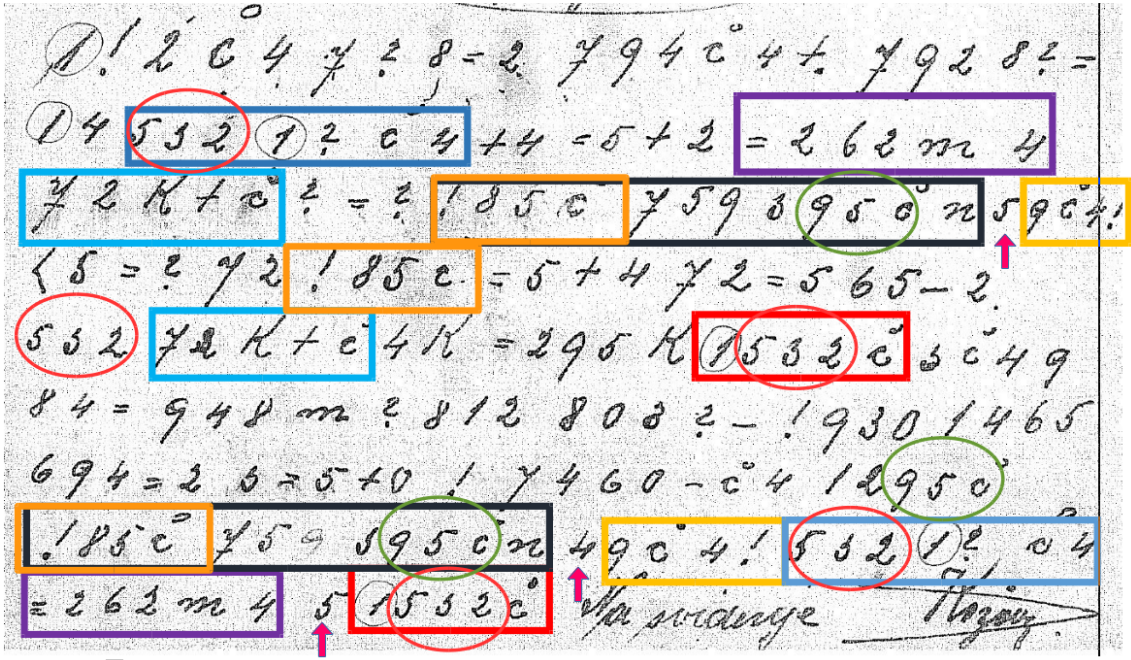 ①! 2 c 4 7 ? 8 = 2. 7 9 4 c° 4 +. 7 9 2 8 ? =
① 4 5 3 2 ① ? c 4 + 4 = 5 + 2 = 2 6 2 m 4
7 2 K + c° ? = ? ! 8 5 c° 7 5 9 3 9 5 c° n 5 9 c° 4 !
5 = ? 7 2 ! 8 5 c. = 5 + 4 7 2 = 5 6 5 - 2.
5 3 2 7 2 K + c° 4 K = 2 9 5 K ① 5 3 2 c° 3 c° 4 9
8 4 = 9 4 8 m ? 8 1 2 8 0 3 ? - ! 9 3 0 1 4 6 5
6 9 4 = 2 3 = 5 + 0 ! 7 4 6 0 - c° 4 1 2 9 5 c°
! 8 5 c° 7 5 9 3 9 5 c° n 4 9 c° 4 ! 5 3 2 ① ? c 4
= 2 6 2 m 4 5 ① 5 3 2 c° Na svidenje